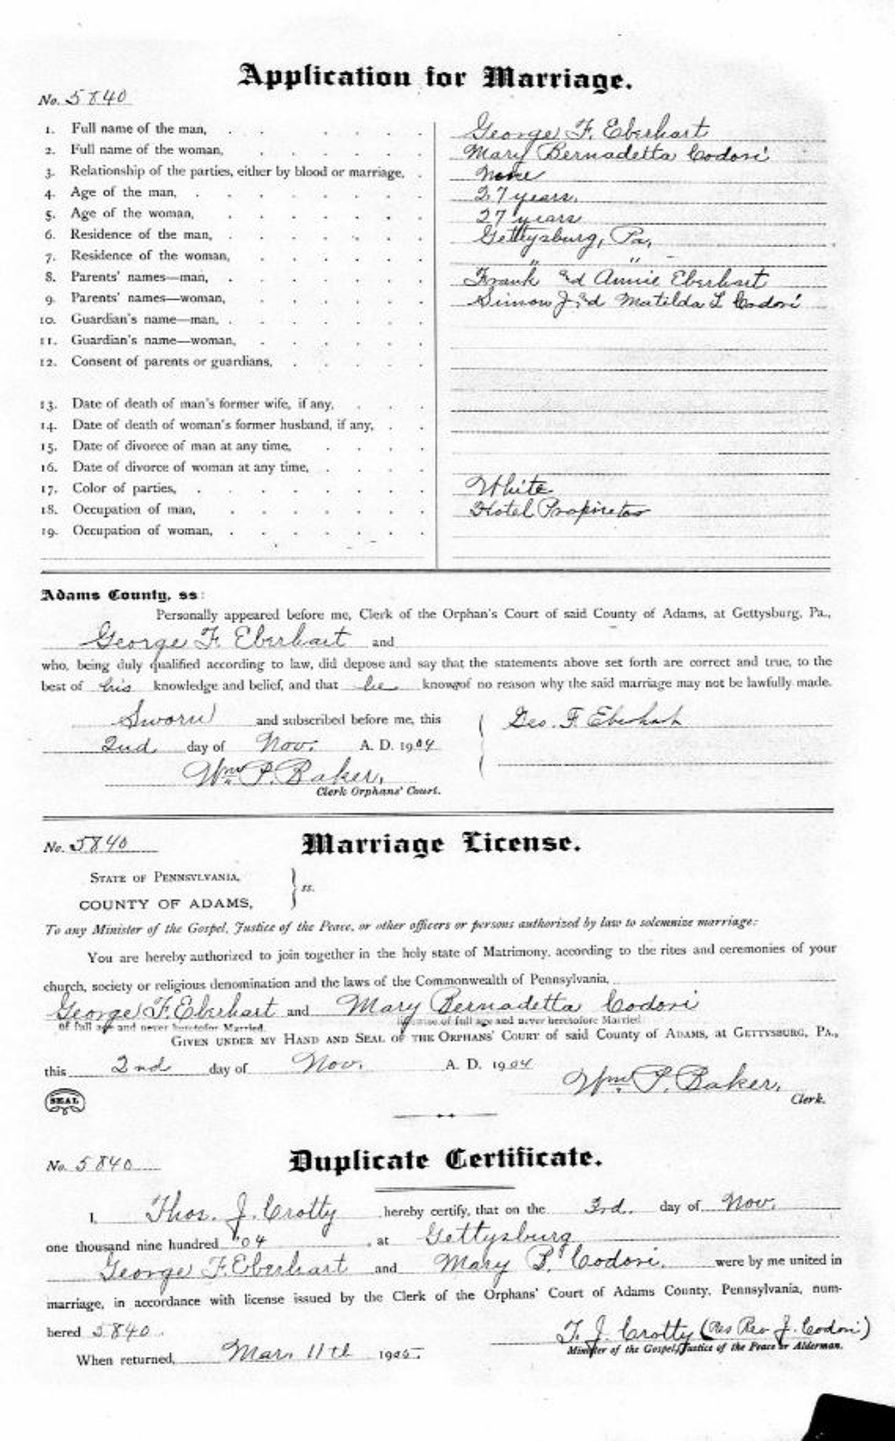 Application for Marriage.
No. 5840
1. Full name of the man, George F. Eberhart
2. Full name of the woman, Mary Bernadetta Codori
3. Relationship of the parties, either by blood or marriage, None
4. Age of the man, 27 years.
5. Age of the woman, 27 years
6. Residence of the man, Gettysburg, Pa,
7. Residence of the woman, " "
8. Parents' names—man, Frank and Annie Eberhart
9. Parents' names—woman, Simon J. and Matilda L Codori
10. Guardian's name—man,
11. Guardian's name—woman,
12. Consent of parents or guardians,
13. Date of death of man's former wife, if any,
14. Date of death of woman's former husband, if any,
15. Date of divorce of man at any time,
16. Date of divorce of woman at any time,
17. Color of parties, White
18. Occupation of man, Hotel Proprietor
19. Occupation of woman,
Adams County, ss:
Personally appeared before me, Clerk of the Orphan's Court of said County of Adams, at Gettysburg, Pa.,
George F. Eberhart and
who, being duly qualified according to law, did depose and say that the statements above set forth are correct and true, to the
best of his knowledge and belief, and that he knows of no reason why the said marriage may not be lawfully made.
Sworn and subscribed before me, this Geo. F. Eberhart
2nd day of Nov. A. D. 1904
Wm. P. Baker,
Clerk Orphans' Court.
No. 5840 Marriage License.
STATE OF PENNSYLVANIA,
COUNTY OF ADAMS, ss.
To any Minister of the Gospel, Justice of the Peace, or other officers or persons authorized by law to solemnize marriage:
You are hereby authorized to join together in the holy state of Matrimony, according to the rites and ceremonies of your
church, society or religious denomination and the laws of the Commonwealth of Pennsylvania,
George F. Eberhart and Mary Bernadetta Codori
of full age and never heretofor Married. of full age and never heretofore Married
GIVEN UNDER MY HAND AND SEAL OF THE ORPHANS' COURT of said County of ADAMS, at GETTYSBURG, PA.,
this 2nd day of Nov. A. D. 1904
Wm. P. Baker,
SEAL Clerk.
No. 5840 Duplicate Certificate.
I, Thos. J. Crotty hereby certify, that on the 3rd. day of Nov.
one thousand nine hundred '04, at Gettysburg
George F. Eberhart and Mary B. Codori. were by me united in
marriage, in accordance with license issued by the Clerk of the Orphans' Court of Adams County, Pennsylvania, num-
bered 5840.
T. J. Crotty (Per Rev J. Codori)
When returned, Mar. 11th 1905
Minister of the Gospel, Justice of the Peace or Alderman.